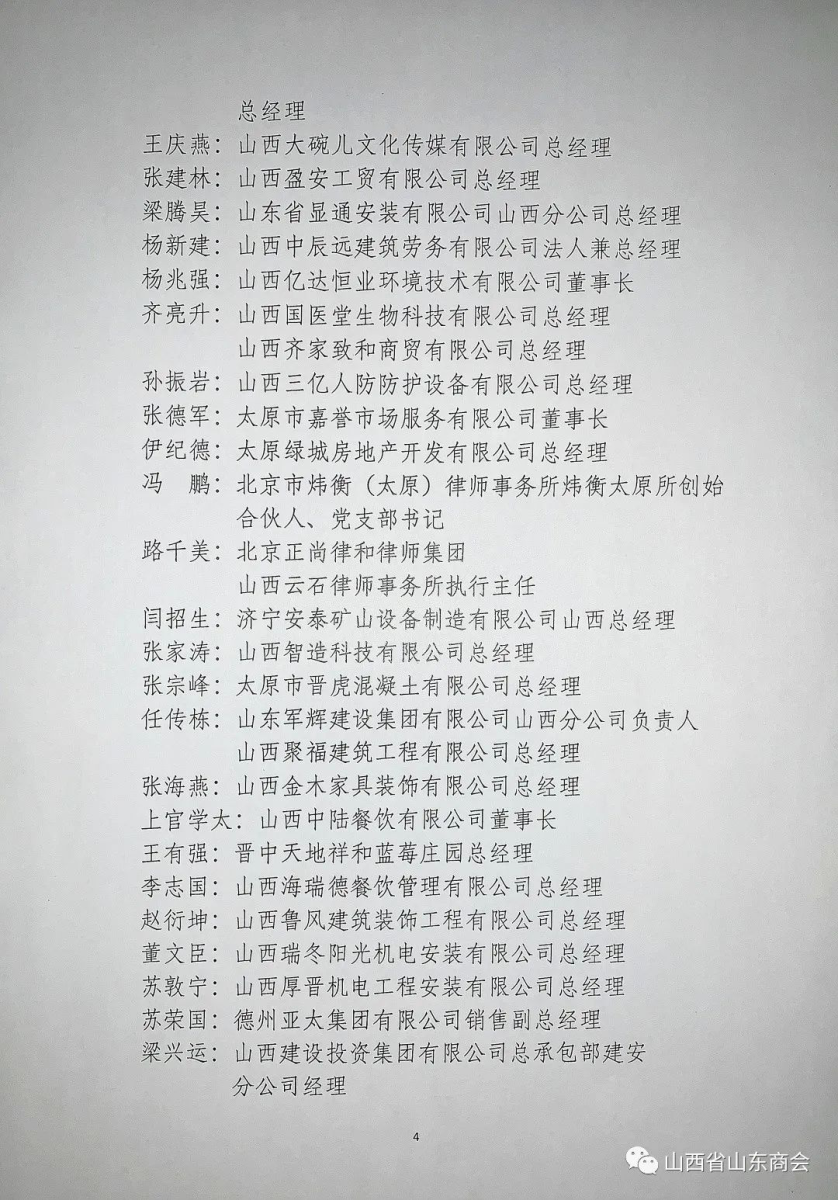 总经理
王庆燕：山西大碗儿文化传媒有限公司总经理
张建林：山西盈安工贸有限公司总经理
梁腾昊：山东省显通安装有限公司山西分公司总经理
杨新建：山西中辰远建筑劳务有限公司法人兼总经理
杨兆强：山西亿达恒业环境技术有限公司董事长
齐亮升：山西国医堂生物科技有限公司总经理
山西齐家致和商贸有限公司总经理
孙振岩：山西三亿人防防护设备有限公司总经理
张德军：太原市嘉誉市场服务有限公司董事长
伊纪德：太原绿城房地产开发有限公司总经理
冯　鹏：北京市炜衡（太原）律师事务所炜衡太原所创始
合伙人、党支部书记
路千美：北京正尚律和律师集团
山西云石律师事务所执行主任
闫招生：济宁安泰矿山设备制造有限公司山西总经理
张家涛：山西智造科技有限公司总经理
张宗峰：太原市晋虎混凝土有限公司总经理
任传栋：山东军辉建设集团有限公司山西分公司负责人
山西聚福建筑工程有限公司总经理
张海燕：山西金木家具装饰有限公司总经理
上官学太：山西中陆餐饮有限公司董事长
王有强：晋中天地祥和蓝莓庄园总经理
李志国：山西海瑞德餐饮管理有限公司总经理
赵衍坤：山西鲁风建筑装饰工程有限公司总经理
董文臣：山西瑞冬阳光机电安装有限公司总经理
苏敦宁：山西厚晋机电工程安装有限公司总经理
苏荣国：德州亚太集团有限公司销售副总经理
梁兴运：山西建设投资集团有限公司总承包部建安
分公司经理
4
山西省山东商会